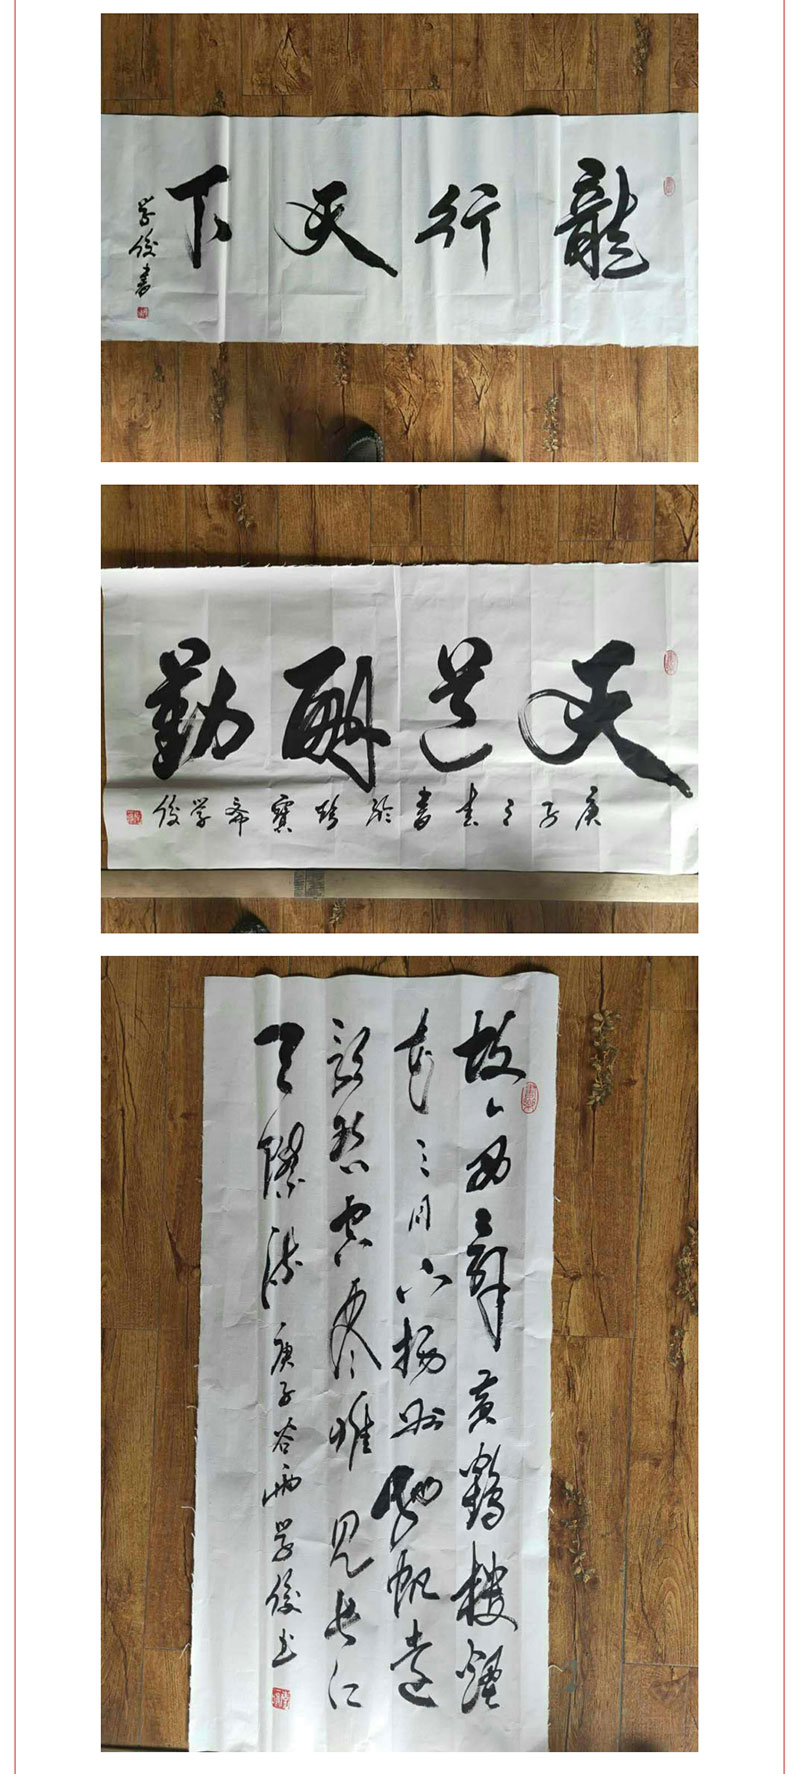 龍行天下
学俊書
天道酬勤
庚子之春書於寶斋学俊
故人西辞黄鶴楼煙
花三月下扬州孤帆遠
影碧空尽唯见长江
天際流
庚子谷雨学俊书